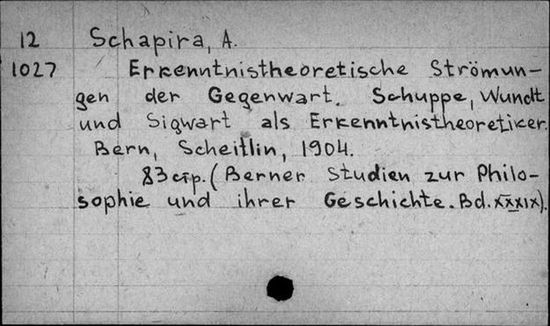 12 Schapira, A.
1027 Erkenntnistheoretische Strömun-
gen der Gegenwart. Schuppe, Wundt
und Sigwart als Erkenntnistheoretiker.
Bern, Scheitlin, 1904.
83 стр. (Berner Studien zur Philo-
sophie und ihrer Geschichte. Bd. XXXIX).